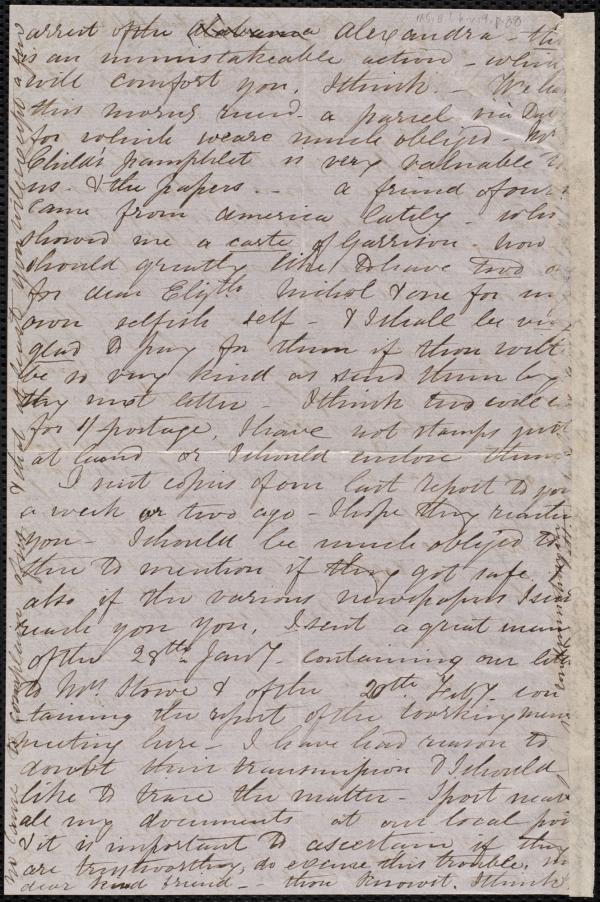 arrest of the Alabama Alexandra - this
is an unmistakeable action - which
will comfort you, I think. - We have
this morng recd. a parcel via
for which we are much obliged - Mrs
Childs pamphlet is very valuable to
us. & the papers. - a friend of ours
came from america lately - who
showed me a carte of Garrison - now
should greatly like to have two o
for dear Elizth Nichol & one for my
own selfish self - & I shall be very
glad to pay for them if thou wilt
be so very kind as send them by
thy next letter - I think two will
for 1/ postage, I have not stamps just
at hand or I should enclose them
I sent copies of our last report to you
a week or two ago - I hope they reached
you - I should be much obliged to
thee to mention if they got safe,
also if the various newspapers I send
reach you you, I sent a great many
of the 28th Jany. containing our
to Mrs Stowe & of the 20th Feby. con
taining the report of the working mens
meeting here - I have had reason to
doubt their transmission & I should
like to trace the matter - I post near
all my documents at our local po
& it is important to ascertain if they
are trustworthy, do excuse this trouble, my
dear kind friend - thou knowest. I think